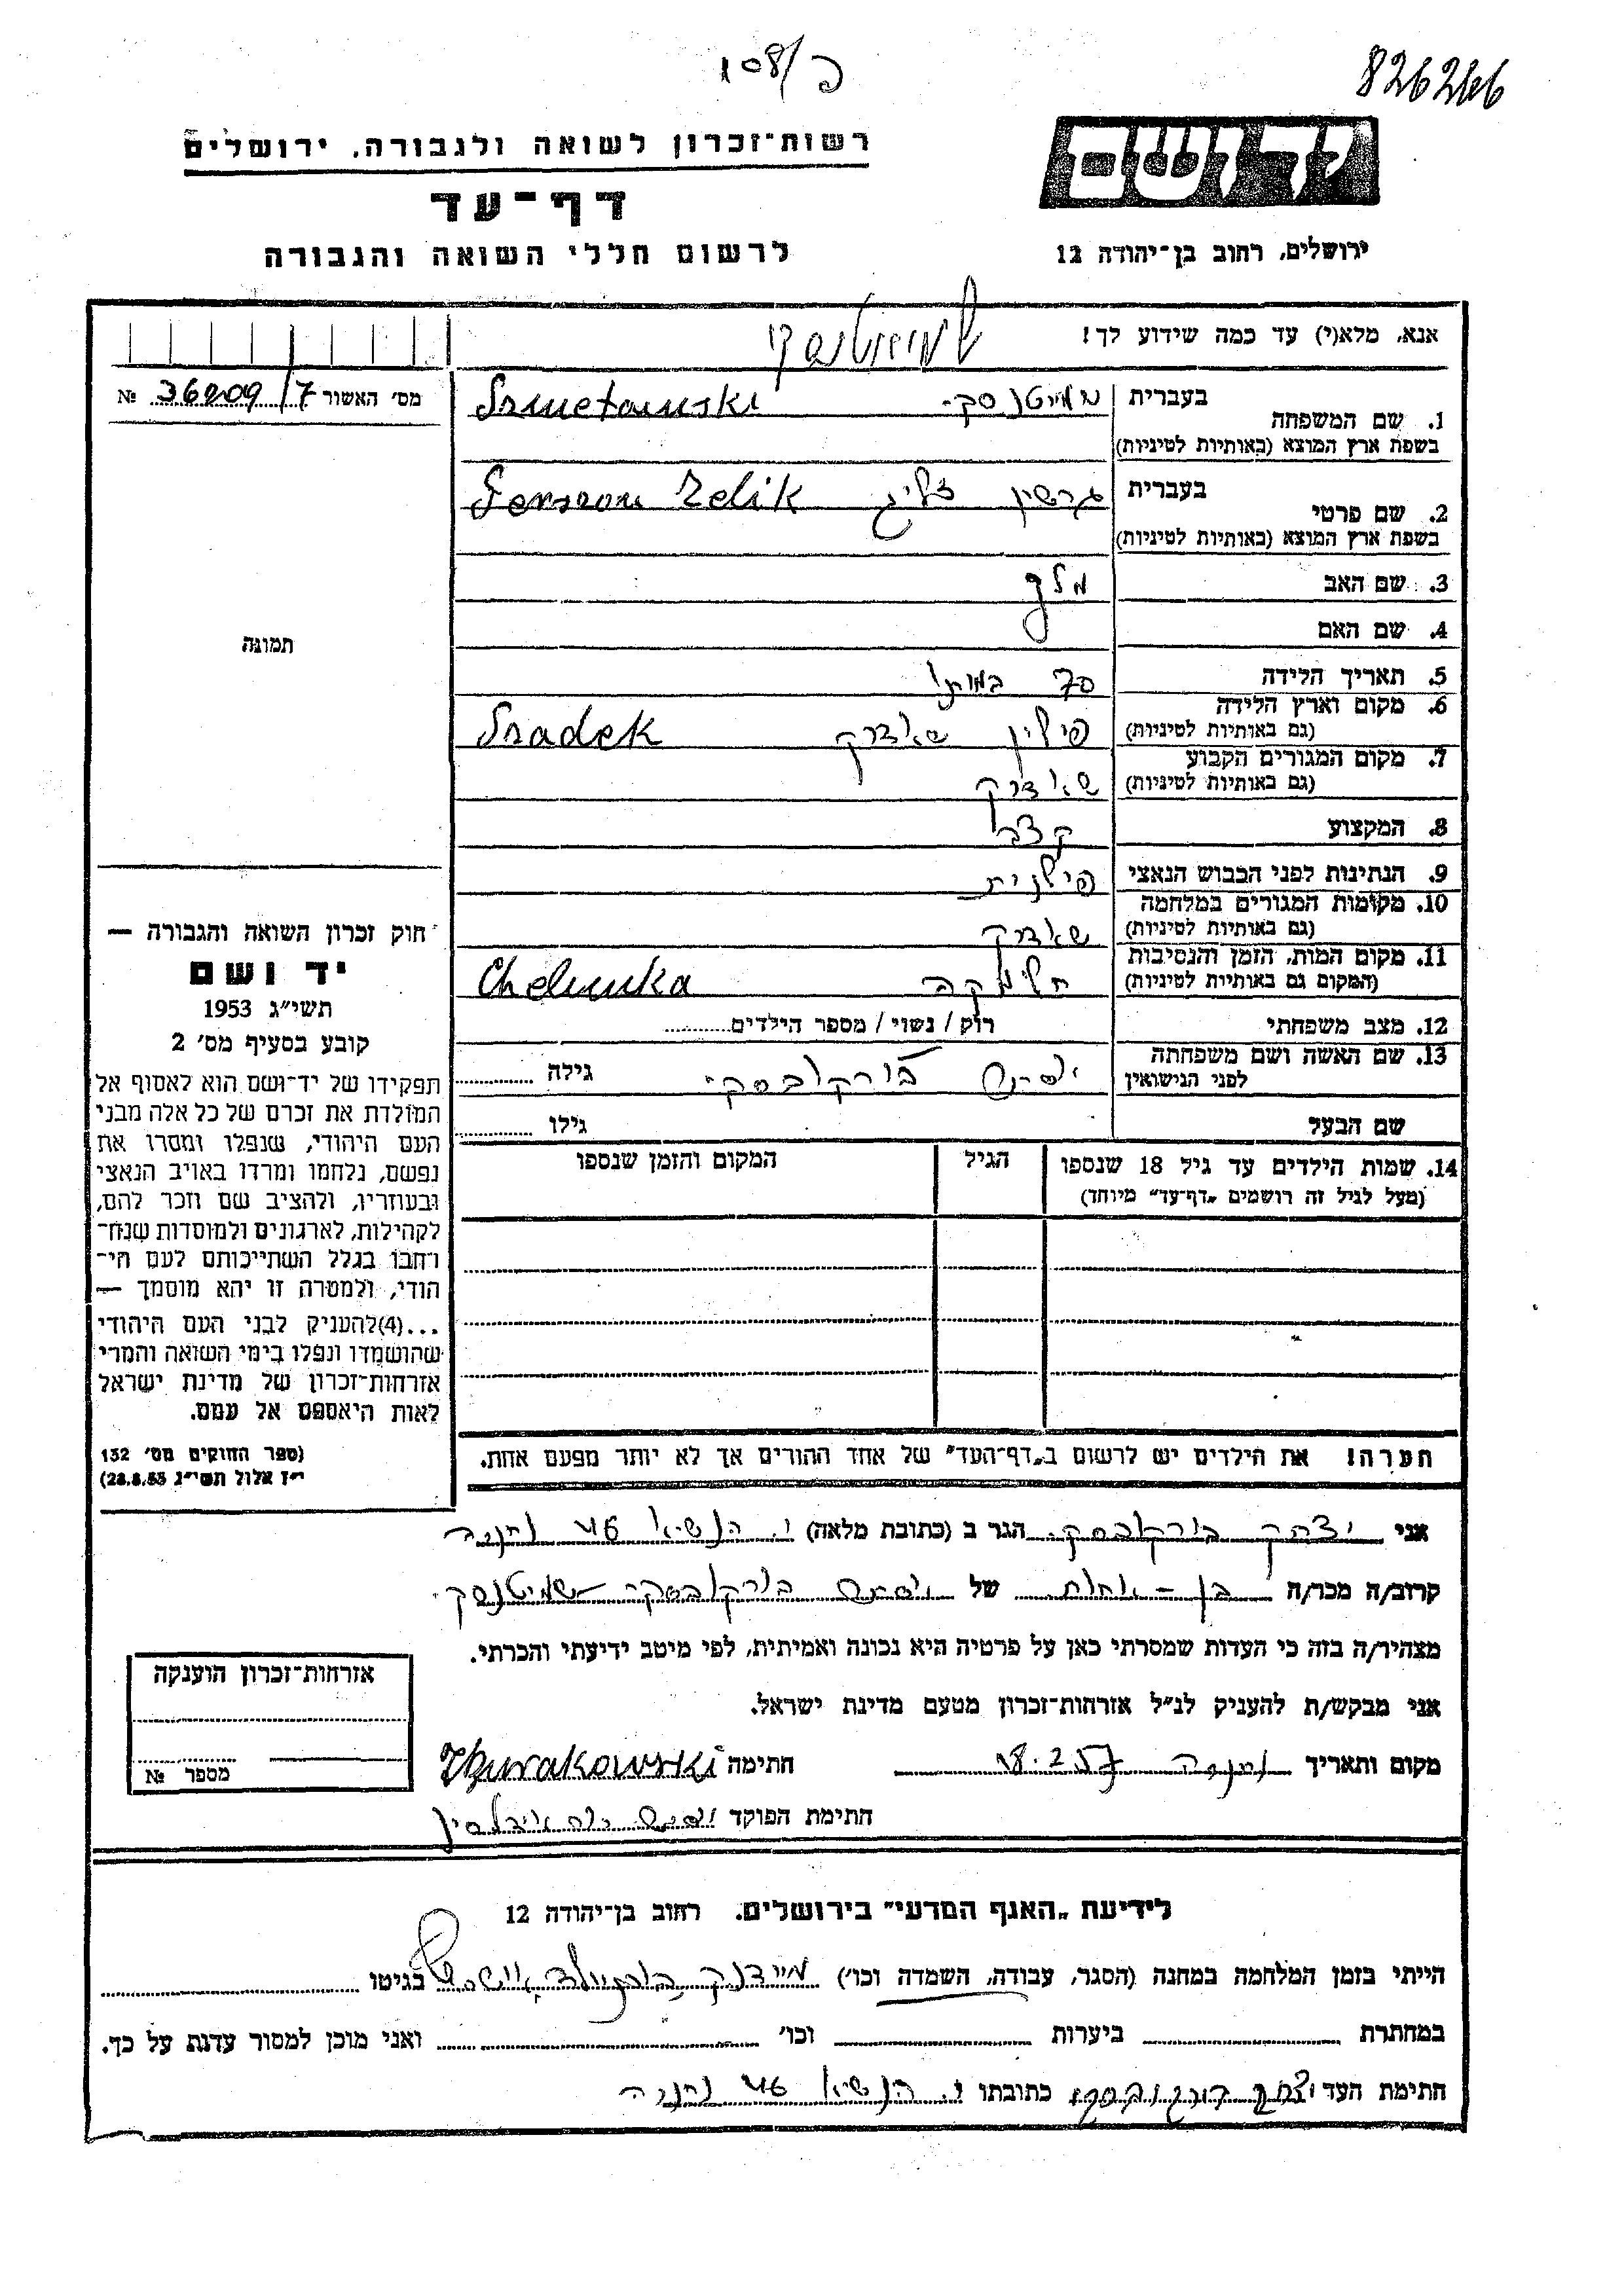 פ/108
826266
יד ושם
רשות־זכרון לשואה ולגבורה, ירושלים
דף־עד
לרשום חללי השואה והגבורה
ירושלים, רחוב בן־יהודה 12
אנא, מלא(י) עד כמה שידוע לך!
מס׳ האשור 36209/7 №
1. שם המשפחה בעברית
Smetanski
בשפת ארץ המוצא (באותיות לטיניות)
2. שם פרטי בעברית גרשון זליג
Gerszon Zelik
בשפת ארץ המוצא (באותיות לטיניות)
3. שם האב מלך
4. שם האם
5. תאריך הלידה 70 במותו
6. מקום וארץ הלידה פולין שאדק Sradek
(גם באותיות לטיניות)
7. מקום המגורים הקבוע
(גם באותיות לטיניות)
8. המקצוע קצב
9. הנתינות לפני הכבוש הנאצי פולנית
10. מקומות המגורים במלחמה
(גם באותיות לטיניות)
11. מקום המות, הזמן והנסיבות Chelmka
(המקום גם באותיות לטיניות)
12. מצב משפחתי רווק / נשוי / מספר הילדים
13. שם האשה ושם משפחתה בורקובסקי גילה
לפני הנישואין
שם הבעל גילו
14. שמות הילדים עד גיל 18 שנספו הגיל המקום והזמן שנספו
(מעל לגיל זה רושמים „דף־עד” מיוחד)
הערה! את הילדים יש לרשום ב„דף־העד” של אחד ההורים אך לא יותר מפעם אחת.
תמונה
חוק זכרון השואה והגבורה —
יד ושם
תשי״ג 1953
קובע בסעיף מס׳ 2
תפקידו של יד־ושם הוא לאסוף אל
המולדת את זכרם של כל אלה מבני
העם היהודי, שנפלו ומסרו את
נפשם, נלחמו ומרדו באויב הנאצי
ובעוזריו, ולהציב שם וזכר להם,
לקהילות, לארגונים ולמוסדות שנח־
רבו בגלל השתייכותם לעם הי־
הודי, ולמטרה זו יהא מוסמך —
...(4)להעניק לבני העם היהודי
שהושמדו ונפלו בימי השואה והמרי
אזרחות־זכרון של מדינת ישראל
לאות היאספם אל עמם.
(ספר החוקים מס׳ 132
י״ז אלול תשי״ג 28.8.53)
אני יצחק בורקובסקי הגר ב (כתובת מלאה) הנשיא נתניה
קרוב/ה מכר/ה בן-אחות של בורקובסקי-שמיטנסקי
מצהיר/ה בזה כי העדות שמסרתי כאן על פרטיה היא נכונה ואמיתית, לפי מיטב ידיעתי והכרתי.
אני מבקש/ת להעניק לנ״ל אזרחות־זכרון מטעם מדינת ישראל.
מקום ותאריך נתניה 18.2.57 חתימה Burakowski
חתימת הפוקד
אזרחות־זכרון הוענקה
מספר №
לידיעת „האגף המדעי” בירושלים. רחוב בן־יהודה 12
הייתי בזמן המלחמה במחנה (הסגר, עבודה, השמדה וכו׳) מיידנק בוכנוולד בגיטו
במחתרת ביערות וכו׳ ואני מוכן למסור עדות על כך.
חתימת העד יצחק בורקובסקי כתובתו הנשיא נתניה